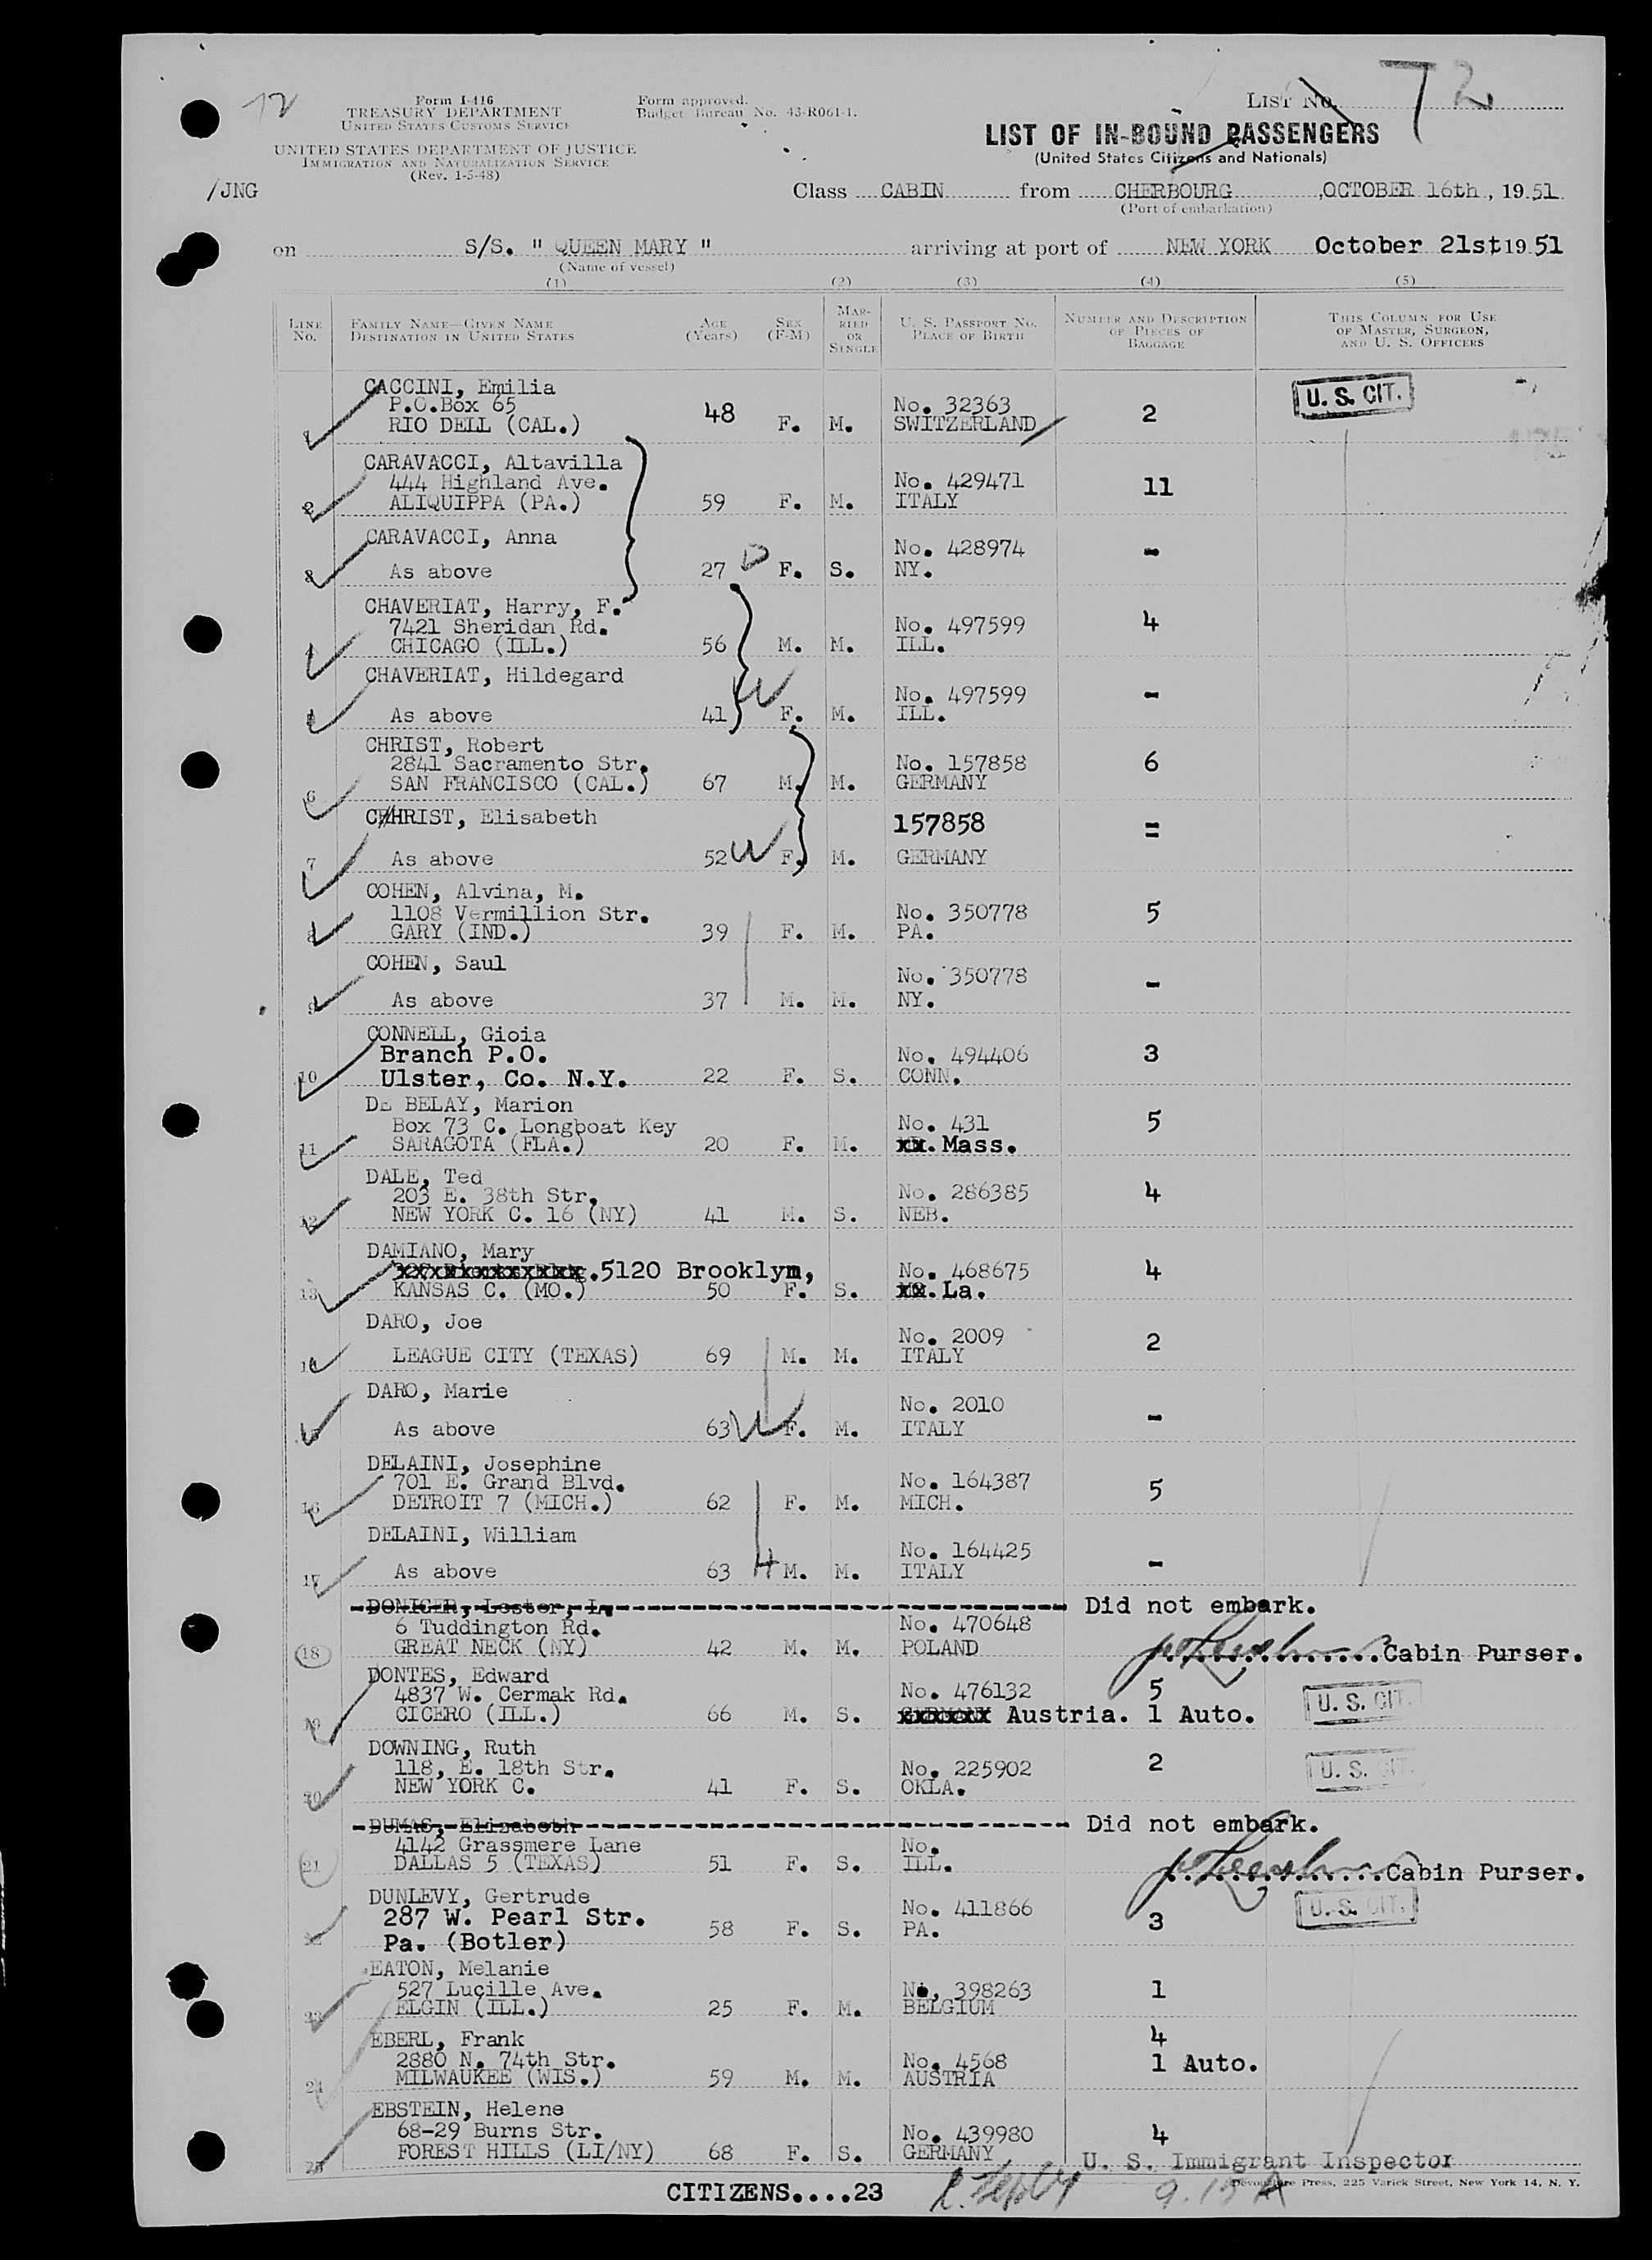 72
Form I-416
TREASURY DEPARTMENT
UNITED STATES CUSTOMS SERVICE
UNITED STATES DEPARTMENT OF JUSTICE
IMMIGRATION AND NATURALIZATION SERVICE
(Rev. 1-5-48)
/JNG
Form approved.
Budget Bureau No. 43-R061-1.
LIST NO. 72
LIST OF IN-BOUND PASSENGERS
(United States Citizens and Nationals)
Class CABIN from CHERBOURG, OCTOBER 16th, 1951
(Port of embarkation)
on S/S. " QUEEN MARY " arriving at port of NEW YORK October 21st 1951
(Name of vessel)
(1) (2) (3) (4) (5)
LINE NO. FAMILY NAME—GIVEN NAME DESTINATION IN UNITED STATES AGE (Years) SEX (F-M) MARRIED OR SINGLE U. S. PASSPORT NO. PLACE OF BIRTH NUMBER AND DESCRIPTION OF PIECES OF BAGGAGE THIS COLUMN FOR USE OF MASTER, SURGEON, AND U. S. OFFICERS
CACCINI, Emilia
P.O.Box 65 No. 32363 2 U. S. CIT.
1 RIO DELL (CAL.) 48 F. M. SWITZERLAND
CARAVACCI, Altavilla
444 Highland Ave. No. 429471 11
2 ALIQUIPPA (PA.) 59 F. M. ITALY
CARAVACCI, Anna No. 428974 -
3 As above 27 D F. S. NY.
CHAVERIAT, Harry, F.
7421 Sheridan Rd. No. 497599 4
4 CHICAGO (ILL.) 56 M. M. ILL.
CHAVERIAT, Hildegard No. 497599 -
5 As above 41 W F. M. ILL.
CHRIST, Robert
2841 Sacramento Str. No. 157858 6
6 SAN FRANCISCO (CAL.) 67 M. M. GERMANY
CHHRIST, Elisabeth 157858 =
7 As above 52 W F. M. GERMANY
COHEN, Alvina, M.
1108 Vermillion Str. No. 350778 5
8 GARY (IND.) 39 F. M. PA.
COHEN, Saul No. 350778 -
9 As above 37 M. M. NY.
CONNELL, Gioia
Branch P.O. No. 494406 3
10 Ulster, Co. N.Y. 22 F. S. CONN.
DE BELAY, Marion
Box 73 C. Longboat Key No. 431 5
11 SARAGOTA (FLA.) 20 F. M. xx. Mass.
DALE, Ted
203 E. 38th Str. No. 286385 4
12 NEW YORK C. 16 (NY) 41 M. S. NEB.
DAMIANO, Mary
xxxxxxxxxxxxx.5120 Brooklym, No. 468675 4
13 KANSAS C. (MO.) 50 F. S. xx. La.
DARO, Joe No. 2009 2
14 LEAGUE CITY (TEXAS) 69 M. M. ITALY
DARO, Marie No. 2010 -
As above 63 W F. M. ITALY
DELAINI, Josephine
701 E. Grand Blvd. No. 164387 5
16 DETROIT 7 (MICH.) 62 F. M. MICH.
DELAINI, William No. 164425 -
17 As above 63 H M. M. ITALY
DONIGER, Lester, L. Did not embark.
6 Tuddington Rd. No. 470648
18 GREAT NECK (NY) 42 M. M. POLAND Cabin Purser.
DONTES, Edward
4837 W. Cermak Rd. No. 476132 5 U. S. CIT.
19 CICERO (ILL.) 66 M. S. xxxxxxx Austria. 1 Auto.
DOWNING, Ruth
118, E. 18th Str. No. 225902 2 U. S. CIT.
20 NEW YORK C. 41 F. S. OKLA.
DUMAS, Elizabeth Did not embark.
4142 Grassmere Lane No.
21 DALLAS 5 (TEXAS) 51 F. S. ILL. Cabin Purser.
DUNLEVY, Gertrude U. S. CIT.
287 W. Pearl Str. No. 411866 3
22 Pa. (Botler) 58 F. S. PA.
EATON, Melanie
527 Lucille Ave. No. 398263 1
23 ELGIN (ILL.) 25 F. M. BELGIUM
EBERL, Frank 4
2880 N. 74th Str. No. 4568 1 Auto.
24 MILWAUKEE (WIS.) 59 M. M. AUSTRIA
EBSTEIN, Helene
68-29 Burns Str. No. 439980 4
25 FOREST HILLS (LI/NY) 68 F. S. GERMANY U. S. Immigrant Inspector
CITIZENS....23
Devonshire Press, 225 Varick Street, New York 14, N. Y.